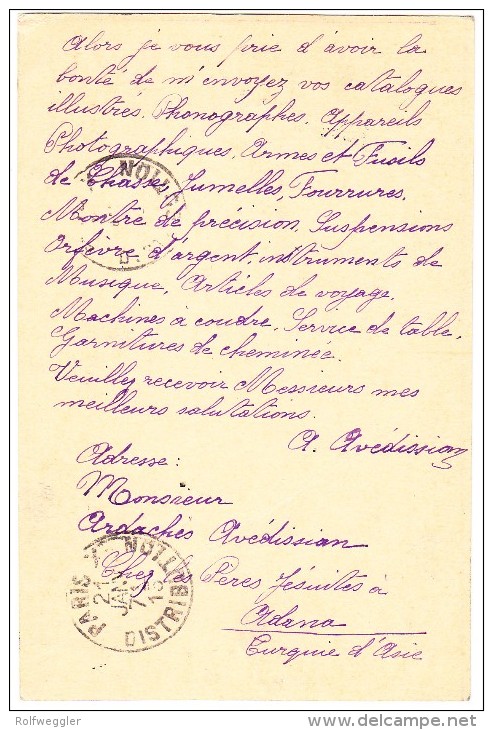 Alors je vous prie d'avoir la
bonté de m'envoyez vos catalogues
illustres. Phonographes. Appareils
Photographiques. Armes et Fusils
de Chasse, Jumelles, Fourrures.
Montre de précision. Suspensions
Orfèvre d'argent, instruments de
Musique, Articles de voyage.
Machines à coudre. Service de table.
Garnitures de cheminée.
Veuillez recevoir Messieurs mes
meilleurs salutations.
A. Avédissian
Adresse:
Monsieur
Ardachès Avédissian
Chez les Pères Jésuites à
Adana
Turquie d'Asie
PARIS
DISTRIBUTION
Rolfweggler
www.delcampe.net